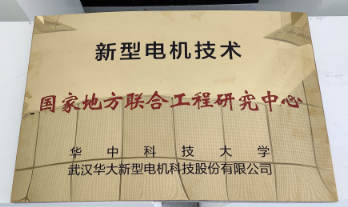 新型电机技术
国家地方联合工程研究中心
华中科技大学
武汉华大新型电机科技股份有限公司